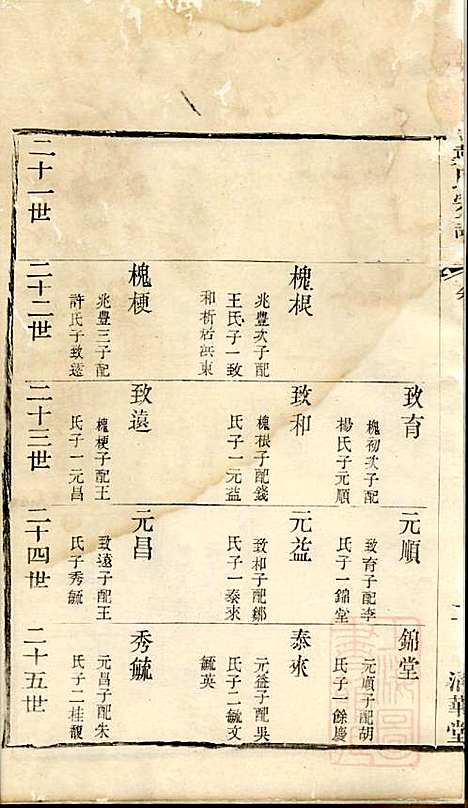 清華堂
致育
槐初次子配
楊氏子元順
元順
致育子配李
氏子一錦堂
錦堂
元順子配胡
氏子一餘慶
槐根
兆豐次子配
王氏子一致
和析居洪東
致和
槐根子配錢
氏子一元益
元益
致和子配鄒
氏子一泰來
泰來
元益子配吳
氏子二毓文
毓英
槐梗
兆豐三子配
許氏子致遠
致遠
槐梗子配王
氏子一元昌
元昌
致遠子配王
氏子秀毓
秀毓
元昌子配朱
氏子二桂馥
二十一世
二十二世
二十三世
二十四世
二十五世